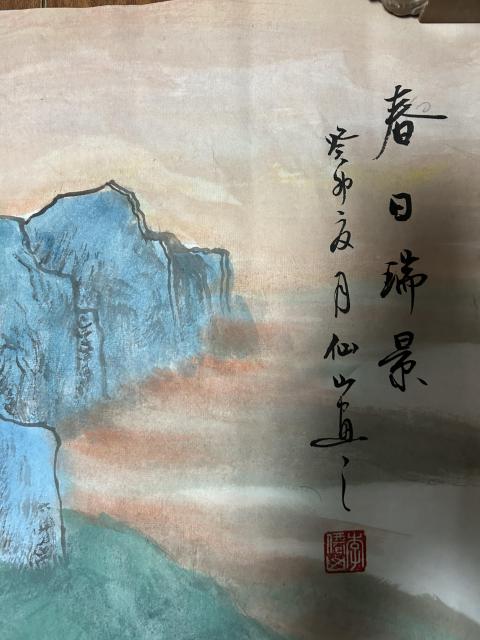 春日瑞景
癸卯夏月仙山画之
李